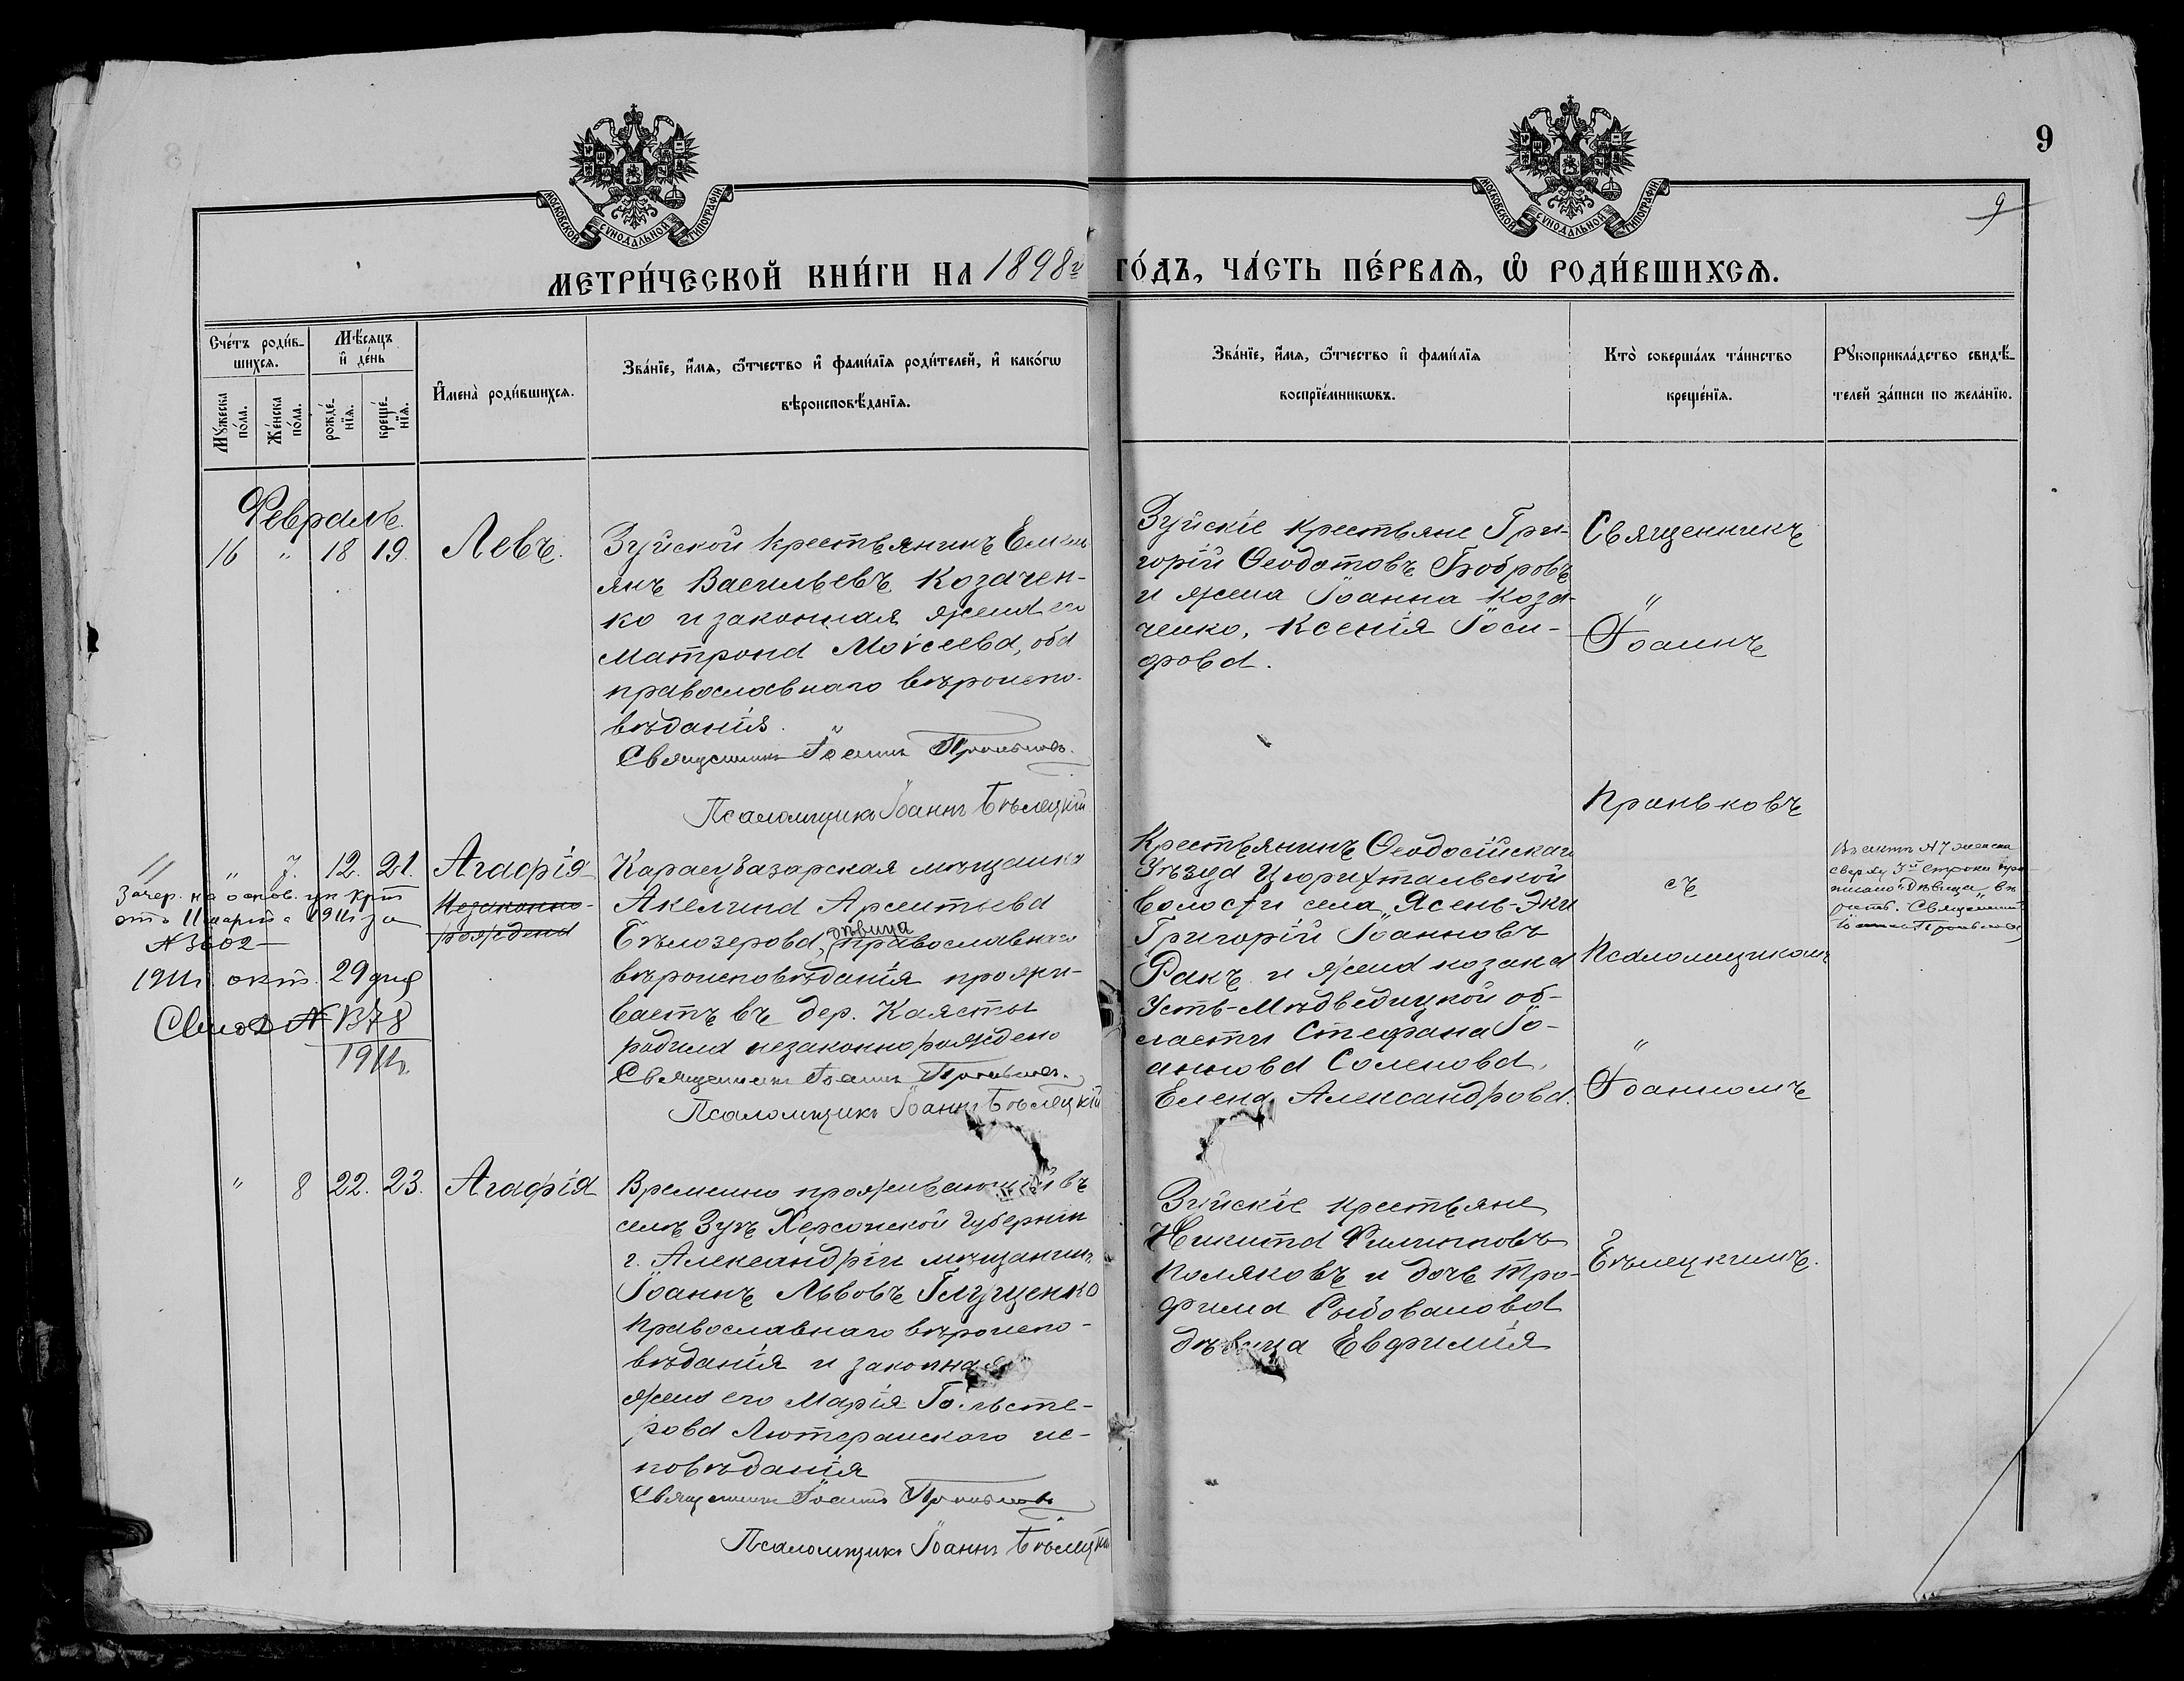 9
9
МОСКОВСКОЙ СѴНОДАЛЬНОЙ ТИПОГРАФІИ
МОСКОВСКОЙ СѴНОДАЛЬНОЙ ТИПОГРАФІИ
МЕТРИ́ЧЕСКОЙ КНИ́ГИ НА 1898 г. ГО́ДЪ, ЧА́СТЬ ПЕ́РВАѦ, Ѽ РОДИ́ВШИХСѦ.
Сче́тъ роди́в-
шихсѧ.
Мꙋ́жеска по́ла.
Же́нска по́ла.
Мѣ́сѧцъ
и҆ де́нь
рожде́-
нїѧ.
креще́-
нїѧ.
И҆мена̀ роди́вшихсѧ.
Зва́нїе, и҆́мѧ, ѻ҆́тчество и҆ фами́лїѧ роди́телей, и҆ како́гѡ
вѣроисповѣ́данїѧ.
Зва́нїе, и҆́мѧ, ѻ҆́тчество и҆ фами́лїѧ
воспрїе́мникѡвъ.
Кто̀ соверша́лъ та́инство
креще́нїѧ.
Рꙋкоприкла́дство свидѣ́-
телей за́писи по жела́нїю.
Февраль.
16 " 18 19. Левъ.
Зуйской крестьянинъ Емель
янъ Васильевъ Козачен-
ко и законная жена его
Матрона Моѵсеева, оба
православнаго вѣроиспо-
вѣданія.
Священникъ Іоаннъ Праньковъ.
Псаломщикъ Іоаннъ Бѣлецкій
Зуйскіе крестьяне Гри-
горій Ѳеодотовъ Бобровъ
и жена Іоанна Коза-
ченко, Ксенія Іоси-
фова.
Священникъ
Іоаннъ
Праньковъ
съ
Псаломщикомъ
Іоанномъ
Бѣлецкимъ.
" 7. 12. 21. Агафія
Незаконно-
рождена
Зачер. на основ. ук
отъ 11 марта 1911 г. за
№ 3602
1911 г. окт. 29 дня
№ 1378
1911 г.
Карасубазарская мѣщанка
Акелина Арсентьева
Бѣлозерова, дѣвица православнаго
вѣроисповѣданія прожи-
ваетъ въ дер. Каясты
родила незаконнорождено
Священникъ Іоаннъ Праньковъ.
Псаломщикъ Іоаннъ Бѣлецкій
Крестьянинъ Ѳеодосійскаго
Уѣзда Цюрихтальской
Волости села Ясень-Эки
Григорій Іоанновъ
Ракъ и жена козака
Усть-Мѣдведицкой об-
ласти Стефана Іо-
аннова Соленова,
Елена Александрова.
Въ счетѣ № 7 женска
сверху 3й строки про
писано "дѣвица",
Священникъ
Іоаннъ Праньковъ
" 8 22. 23. Агафія
Временно проживающій въ
селѣ Зуѣ Херсонской губерніи
г. Александріи мѣщанинъ
Іоаннъ Львовъ Глущенко
Православнаго вѣроиспо-
вѣданія и законная
жена его Марія
рова Лютеранскаго ис-
повѣданія
Священникъ Іоаннъ Праньковъ
Псаломщикъ Іоаннъ Бѣлецкій
Зуйскіе крестьяне
Никита Филиповъ
Поляковъ и дочь Тро-
фима Рыбовалова
дѣвица Евфимія